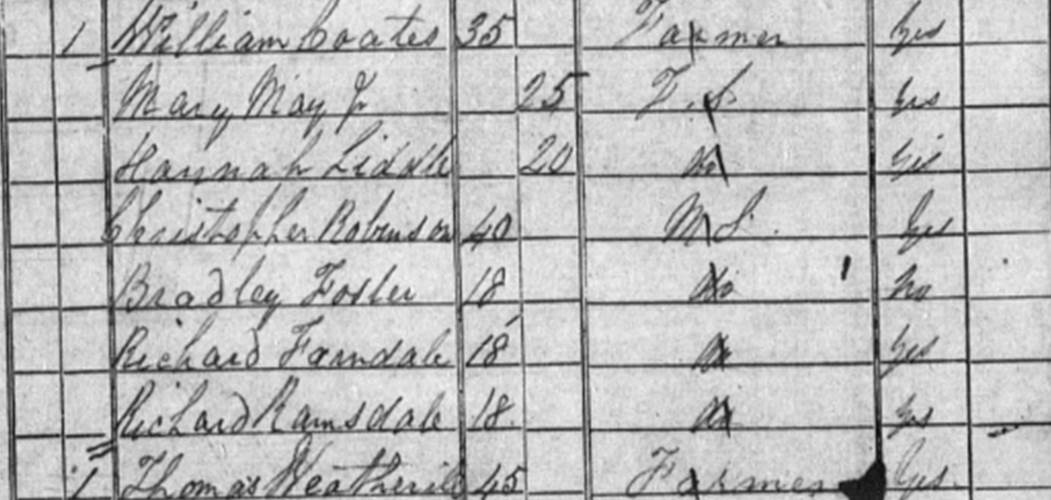 1 William Coates 35 Farmer Yes
Mary May 25 F.S. Yes
Hannah Liddle 20 do Yes
Christopher Robinson 40 M.S. Yes
Bradley Foster 18 do No
Richard Farndale 18 do Yes
Richard Ramsdale 18 do Yes
1 Thomas Weatherill 45 Farmer Yes